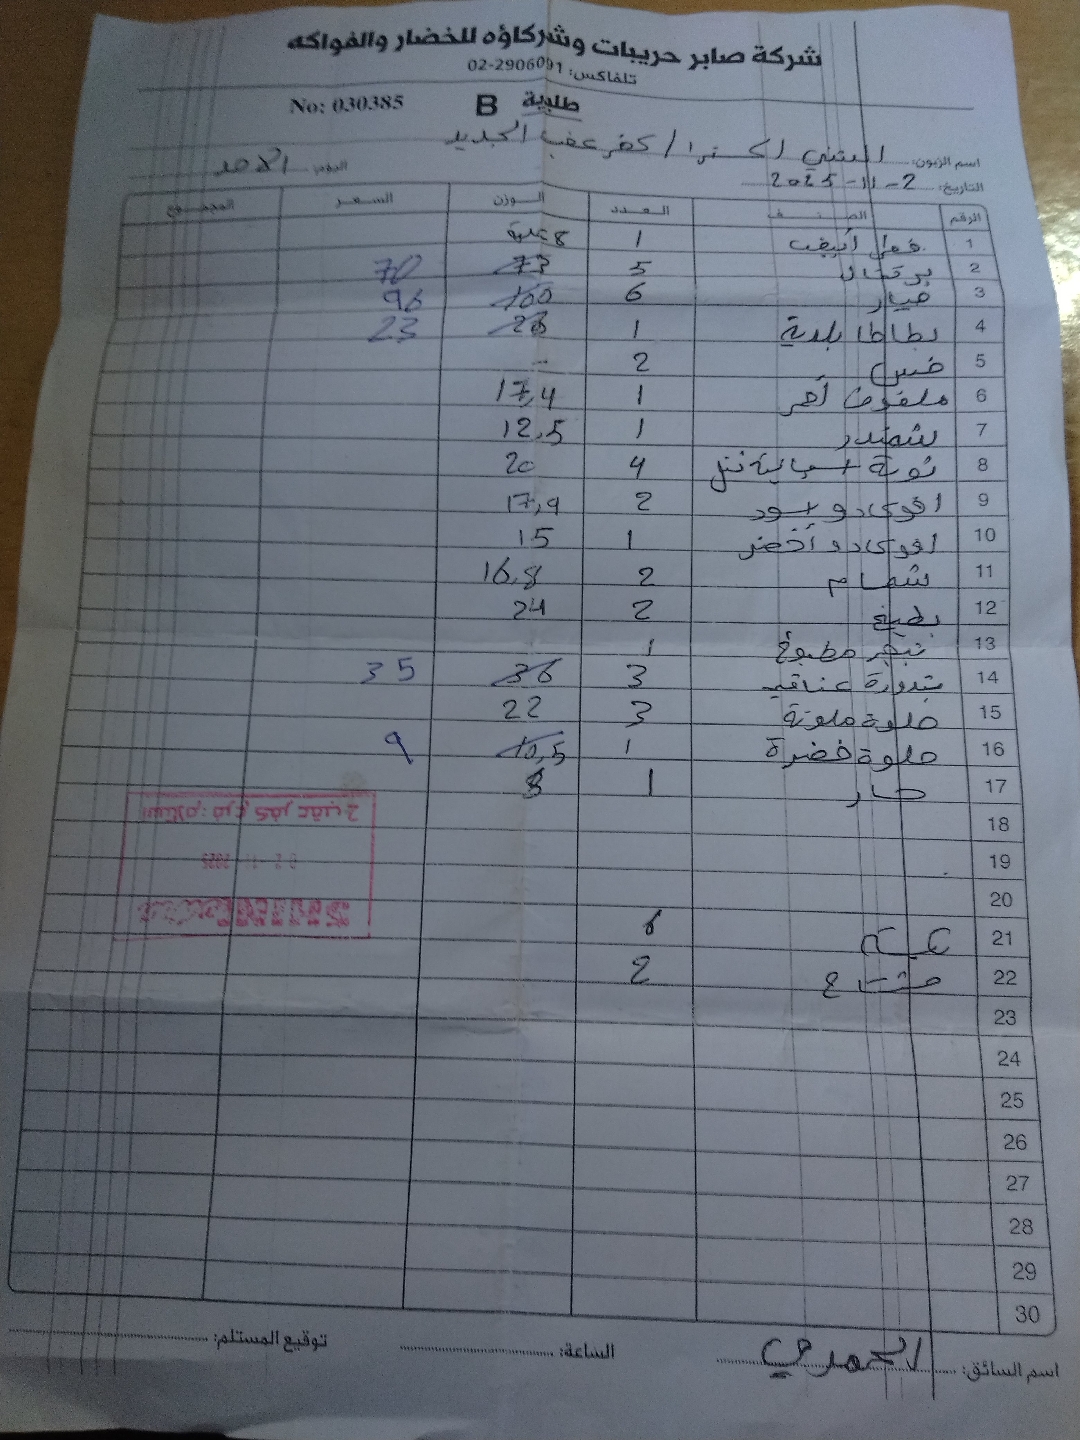 شركة صابر حريبات وشركاؤه للخضار والفواكه
تلفاكس: 02-2906091
طلبية B No: 030385
اسم الزبون: الميني اكسترا / كفر عقب الجديد اليوم: الاحد
التاريخ: 2-11-2025
الرقم الصنف العدد الوزن السعر المجموع
1 فطر أبيض 1 8 علبة
2 برتقال 5 73 70
3 خيار 6 100 96
4 بطاطا بلدية 1 23
5 خس 2 -
6 ملفوف أحمر 1 17,4
7 شمندر 1 12,5
8 4 20
9 افوكادو اسود 2 17,9
10 افوكادو أخضر 1 15
11 شمام 2 16,8
12 بطيخ 2 24
13 بنجر مطبوخ 1
14 بندورة عناقيد 3 36 35
15 حلوة ملونة 3 22
16 حلوة خضرة 1 10,5 9
17 حار 1 3
18
19
20
21
22 مشتاح 2
23
24
25
26
27
28
29
30
استلام فرع كفر عقب-2
02-11-2025
اسم السائق: الحمدي الساعة: توقيع المستلم: